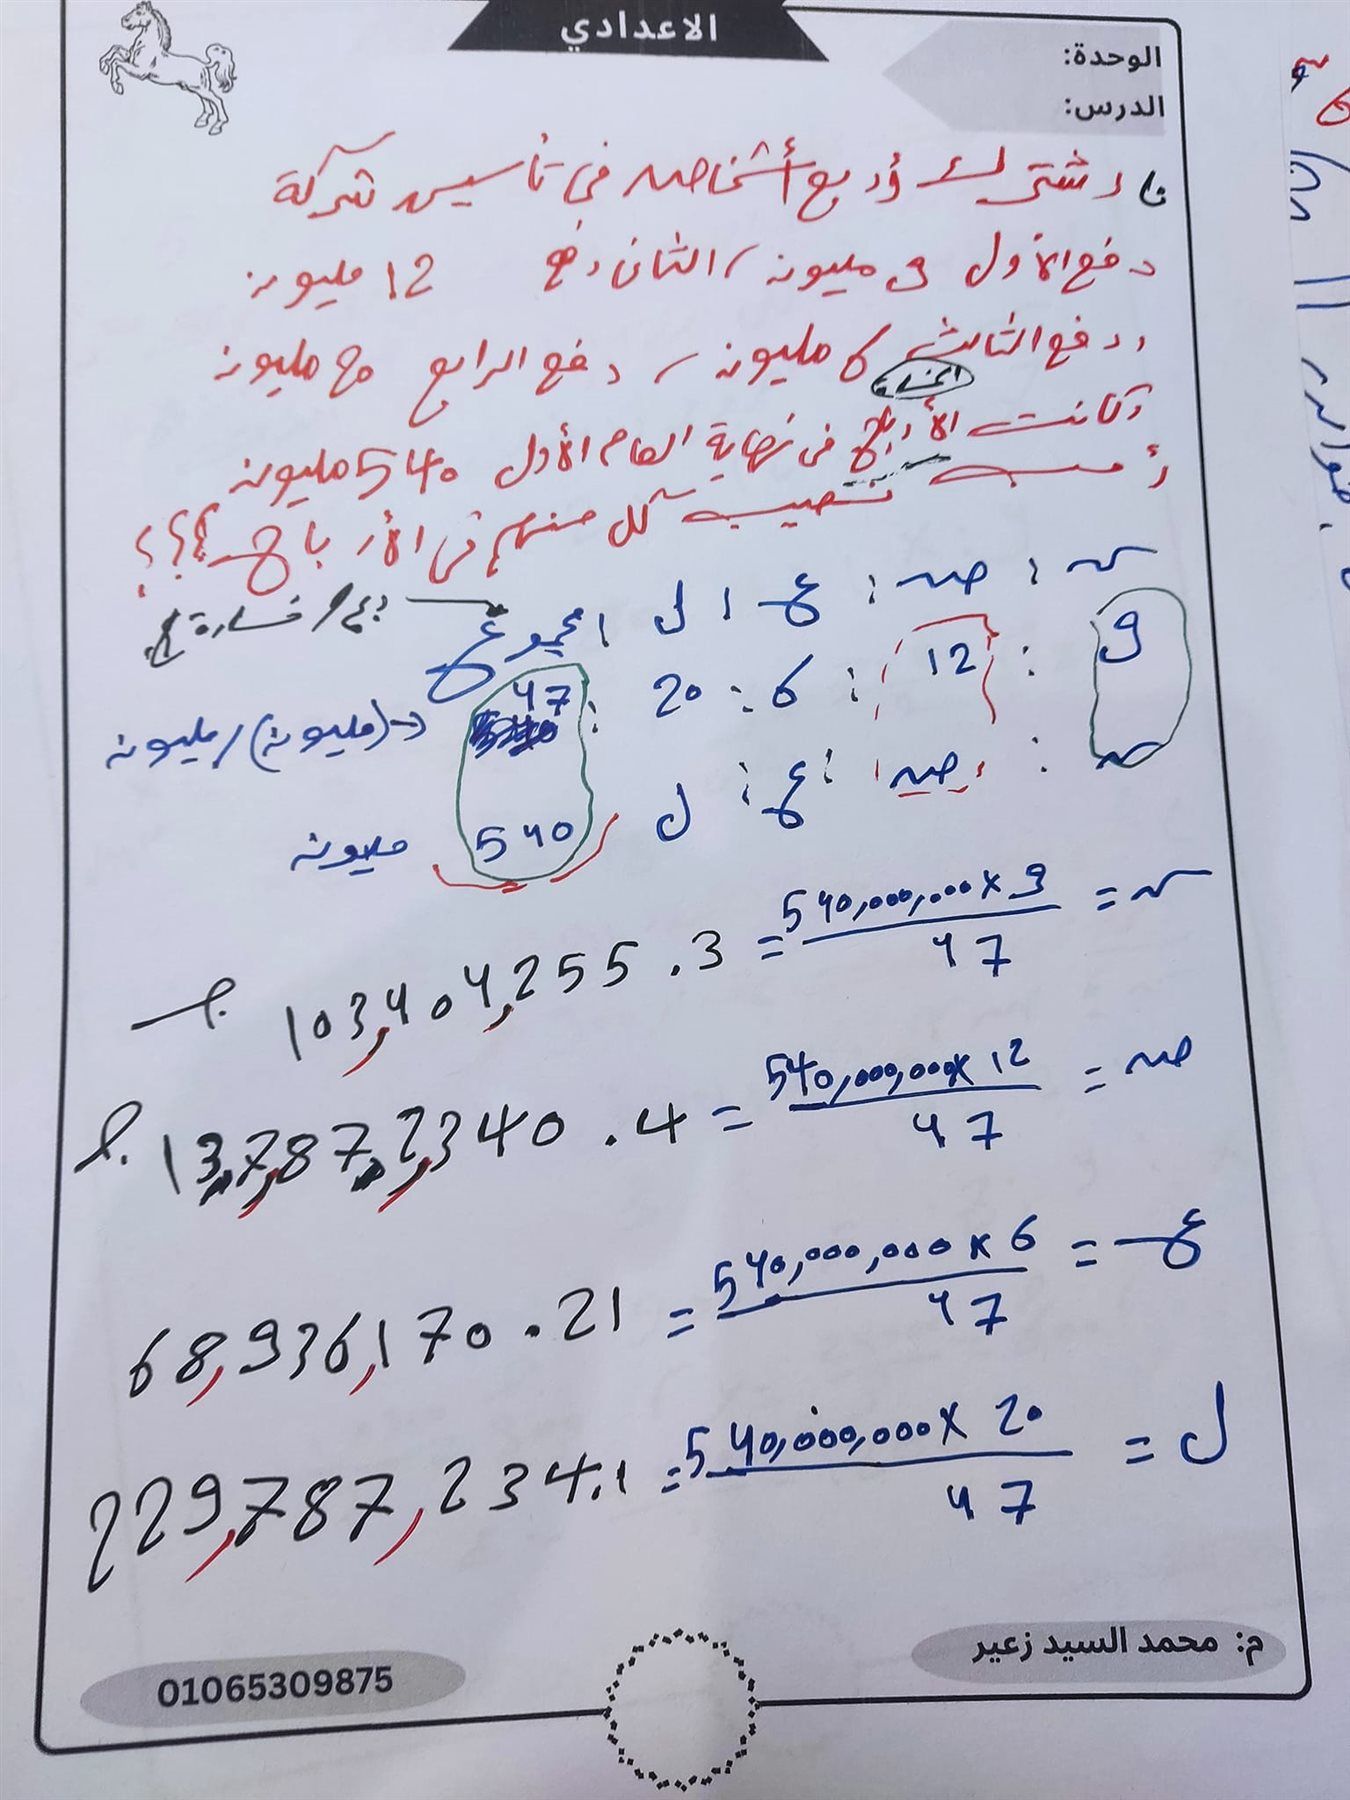 الاعدادي
الوحدة:
الدرس:
اشترك أربع أشخاص في تأسيس شركة
دفع الأول 9 مليون / الثاني دفع 12 مليون
ودفع الثالث 6 مليون / دفع الرابع 20 مليون
الخسارة
وكانت الأرباح في نهاية العام الأول 540 مليون
أحسب نصيب كل منهم في الأرباح ؟؟؟
س : ص : ع : ل : مجموع
ربح / خسارة
9 : 12 : 6 : 20 : 47 (مليون) / مليون
س : ص : ع : ل 540 مليون
س = 540,000,000 x 9 / 47 = 103,404,255.3 ج.
ص = 540,000,000 x 12 / 47 = 13,7,87,2,340.4 ج.
ع = 540,000,000 x 6 / 47 = 68,936,170.21
ل = 540,000,000 x 20 / 47 = 229,787,234.1
م: محمد السيد زعير
01065309875